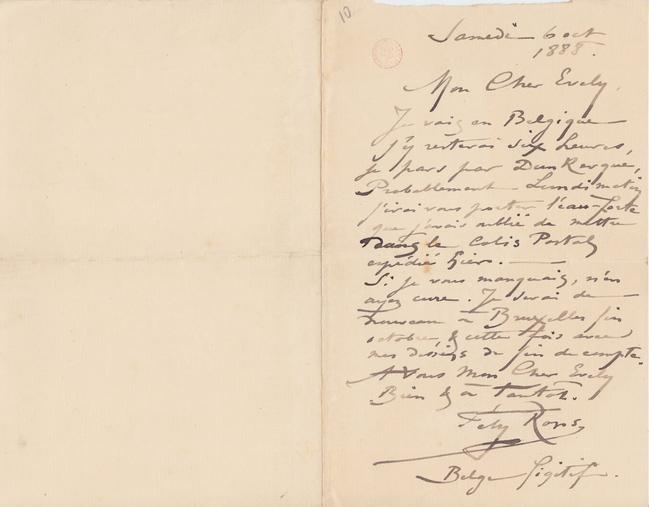 10
Samedi 6 oct
1888.
Mon Cher Evely,
Je vais en Belgique
j'y resterai six heures,
je pars par DunKerque,
Probablement Lundi matin
j'irai vous porter l'eau-forte
que j'avais oublié de mettre
Dans le Colis Postal
expédié hier.
Si je vous manquais, n'en
ayez cure. Je serai de
nouveau à Bruxelles fin
octobre, & cette fois avec
mes dessins de fin de compte.
A Vous Mon Cher Evely
Bien & à tantôt.
Fély Rops
Belge